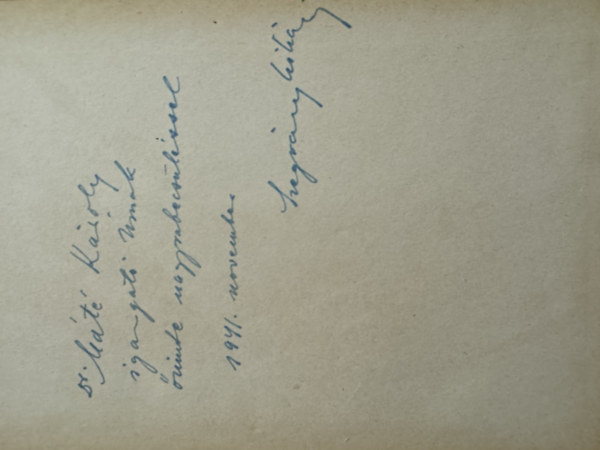 Dr. Máté Károly
igazgató Úrnak
őszinte nagyrabecsüléssel
1941. november